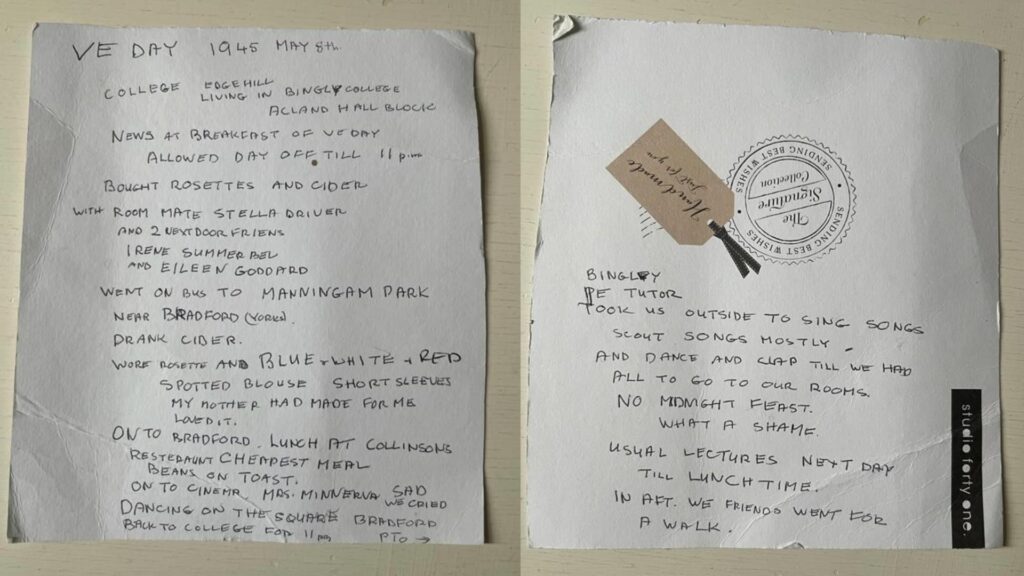 VE DAY 1945 MAY 8th.
COLLEGE EDGEHILL
LIVING IN BINGLY COLLEGE
ACLAND HALL BLOCK
NEWS AT BREAKFAST OF VE DAY
ALLOWED DAY OFF TILL 11 p.m
BOUGHT ROSETTES AND CIDER
WITH ROOM MATE STELLA DRIVER
AND 2 NEXT DOOR FRIENS
IRENE SUMMERBEL
AND EILEEN GODDARD
WENT ON BUS TO MANNINGAM PARK
NEAR BRADFORD (YORKS).
DRANK CIDER.
WORE ROSETTE AND BLUE + WHITE + RED
SPOTTED BLOUSE SHORT SLEEVES
MY MOTHER HAD MADE FOR ME
LOVED IT.
ON TO BRADFORD. LUNCH AT COLLINSONS
RESTEDAUNT CHEAPEST MEAL
BEANS ON TOAST.
ON TO CINEMA. MRS. MINNERVA SAD
WE CRIED
DANCING ON THE SQUARE BRADFORD
BACK TO COLLEGE FOR 11 pm
PTO →
Handmade
Just for you
SENDING BEST WISHES
The
Signature
Collection
SENDING BEST WISHES
BINGLEY
PE TUTOR
TOOK US OUTSIDE TO SING SONGS
SCOUT SONGS MOSTLY,
AND DANCE AND CLAP TILL WE HAD
ALL TO GO TO OUR ROOMS.
NO MIDNIGHT FEAST.
WHAT A SHAME.
USUAL LECTURES NEXT DAY
TILL LUNCHTIME.
IN AFT. WE FRIENDS WENT FOR
A WALK.
studio forty one.